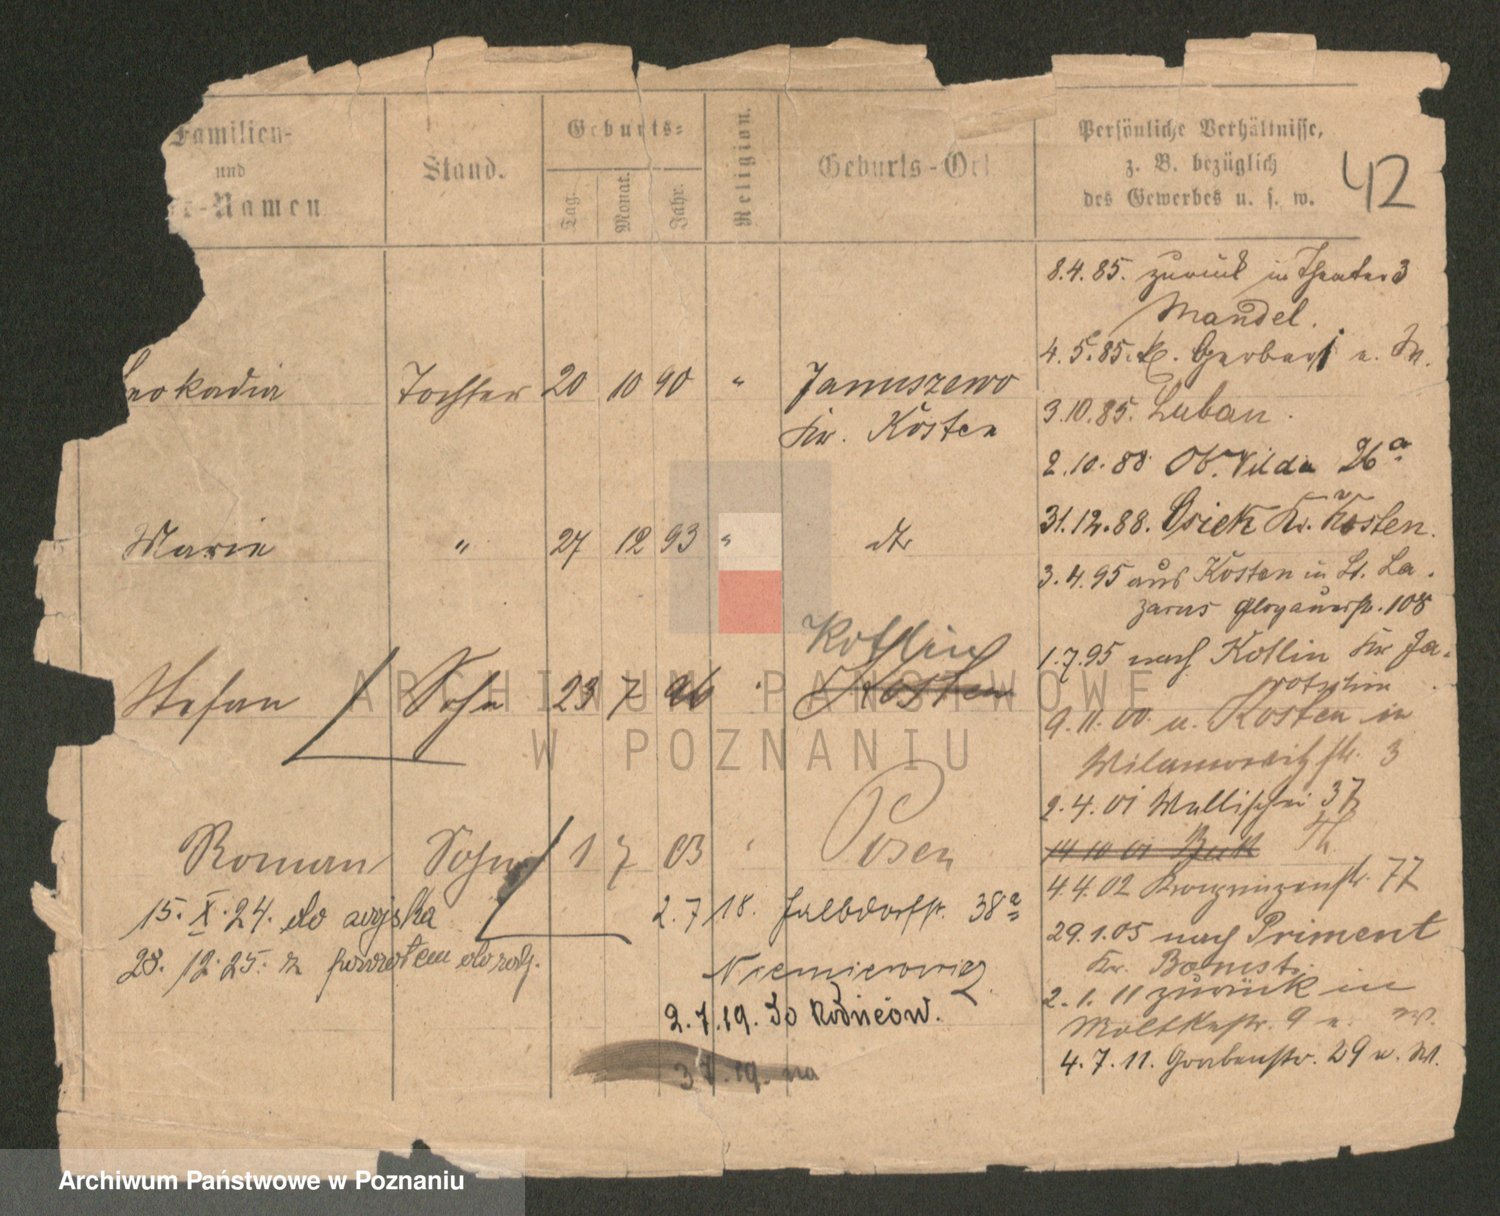 Familien-
und
-Namen
Stand.
Geburts-
Tag.
Monat.
Jahr.
Religion.
Geburts-Ort
Persönliche Verhältnisse,
z. B. bezüglich
des Gewerbes u. s. w.
42
8.4.85. zurück in Theater 3
Mandel.
4.5.85. Gerber u. M.
eokadia Tochter 20 10 90 " Januszewo
Kr. Kosten
3.10.85. Luban.
2.10.88 Ob. Wilda 26a
31.12.88. Osiek Kr. Kosten.
Marie " 27 12 93 " dto
3.4.95 aus Kosten in St. La-
zarus Glogauerstr. 108
Kotlin
1.7.95 nach Kotlin Kr Ja-
rotschin
Stefan Sohn 23 7 96 " Kosten
9.11.00 u. Kosten in
Wilamowitzstr. 3
2.4.01 Wallischei 37
14 10 01 Buk Th
Roman Sohn 1 7 03 " Posen
4 4.02 Kronprinzenstr. 77
15. X. 24. do wojska
2.7.18. Halbdorfstr. 38a
29.1.05 nach Priment
Kr. Bomst.
28. 12. 25. z powrotem do rodz.
Niemierowicz
2.1.11 zurück in
Moltkestr. 9 u. W.
2.7.19. Do Rodziców.
3 7.19. na
4.7.11. Grabenstr. 29 u. W.
ARCHIWUM PAŃSTWOWE
W POZNANIU
Archiwum Państwowe w Poznaniu